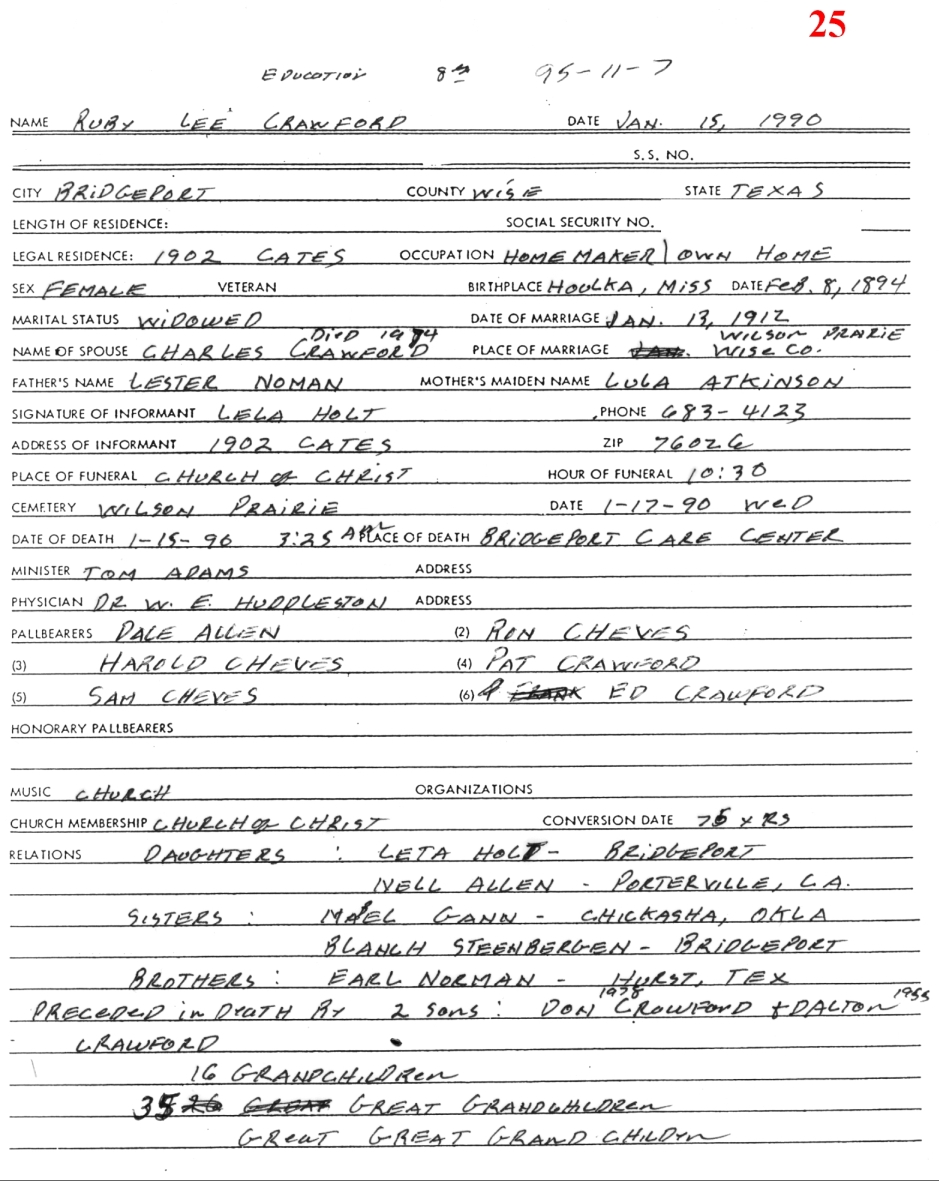 25
EDUCATION 8th 95-11-7
NAME RUBY LEE CRAWFORD DATE JAN. 15, 1990
S.S. NO.
CITY BRIDGEPORT COUNTY WISE STATE TEXAS
LENGTH OF RESIDENCE: SOCIAL SECURITY NO.
LEGAL RESIDENCE: 1902 CATES OCCUPATION HOMEMAKER | OWN HOME
SEX FEMALE VETERAN BIRTHPLACE HOULKA, MISS DATE FEB. 8, 1894
MARITAL STATUS WIDOWED DATE OF MARRIAGE JAN. 13, 1912
DIED WILSON PRARIE
NAME OF SPOUSE CHARLES CRAWFORD PLACE OF MARRIAGE WISE CO.
FATHER'S NAME LESTER NOMAN MOTHER'S MAIDEN NAME LULA ATKINSON
SIGNATURE OF INFORMANT LELA HOLT PHONE 683-4123
ADDRESS OF INFORMANT 1902 CATES ZIP 76026
PLACE OF FUNERAL CHURCH of CHRIST HOUR OF FUNERAL 10:30
CEMETERY WILSON PRAIRIE DATE 1-17-90 WED
DATE OF DEATH 1-15-90 3:25 AM PLACE OF DEATH BRIDGEPORT CARE CENTER
MINISTER TOM ADAMS ADDRESS
PHYSICIAN DR W. E. HUDDLESTON ADDRESS
PALLBEARERS DALE ALLEN (2) RON CHEVES
(3) HAROLD CHEVES (4) PAT CRAWFORD
(5) SAM CHEVES (6) ED CRAWFORD
HONORARY PALLBEARERS
MUSIC CHURCH ORGANIZATIONS
CHURCH MEMBERSHIP CHURCH of CHRIST CONVERSION DATE 75 YRS
RELATIONS DAUGHTERS : LETA HOLT - BRIDGEPORT
NELL ALLEN - PORTERVILLE, CA.
SISTERS : MABEL GANN - CHICKASHA, OKLA
BLANCH STEENBERGEN - BRIDGEPORT
BROTHERS : EARL NORMAN - HURST, TEX
1978 1955
PRECEDED in DEATH By 2 sons : DON CRAWFORD + DALTON
CRAWFORD
16 GRANDCHILDREN
35 GREAT GRANDCHILDREN
GREAT GREAT GRAND CHILDREN